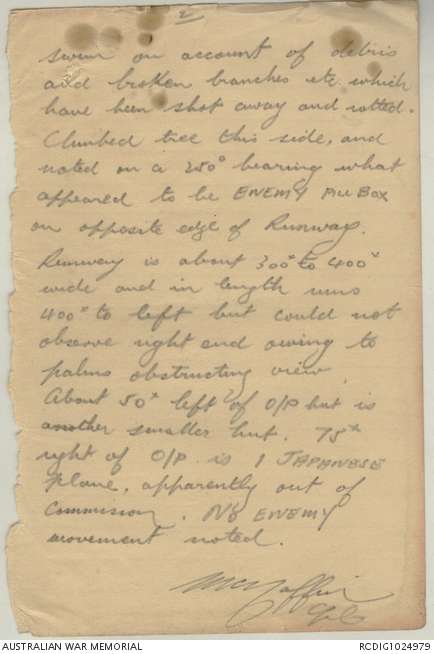 2
swim on account of debris
and broken branches etc which
have been shot away and rotted.
Climbed tree this side, and
noted on a 250° bearing what
appeared to be ENEMY Pill Box
on opposite edge of Runway.
Runway is about 300x to 400x
wide and in length runs
400x to left but could not
observe right end owing to
palms obstructing view.
About 50x left of O/P hut is
another smaller hut. 75x
right of O/P is 1 JAPANESE
plane, apparently out of
Commission. No ENEMY
movement noted.
AUSTRALIAN WAR MEMORIAL
RCDIG1024979